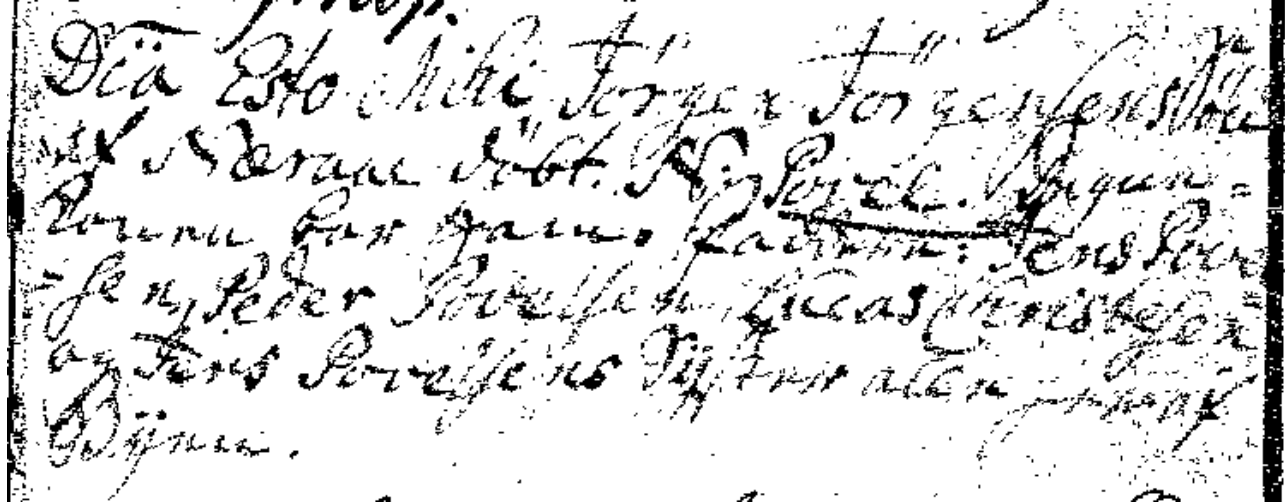 Dca Esto Mihi Jörgen Jörgensens Sön
af Neraae döbt. N. Povel. Jngen
Konen bar ham. Faddere: Jens Povel
=sen, Peder Povelsen, Lucas Christensen
og Jens Povelsens Syster alle her af
Byen.